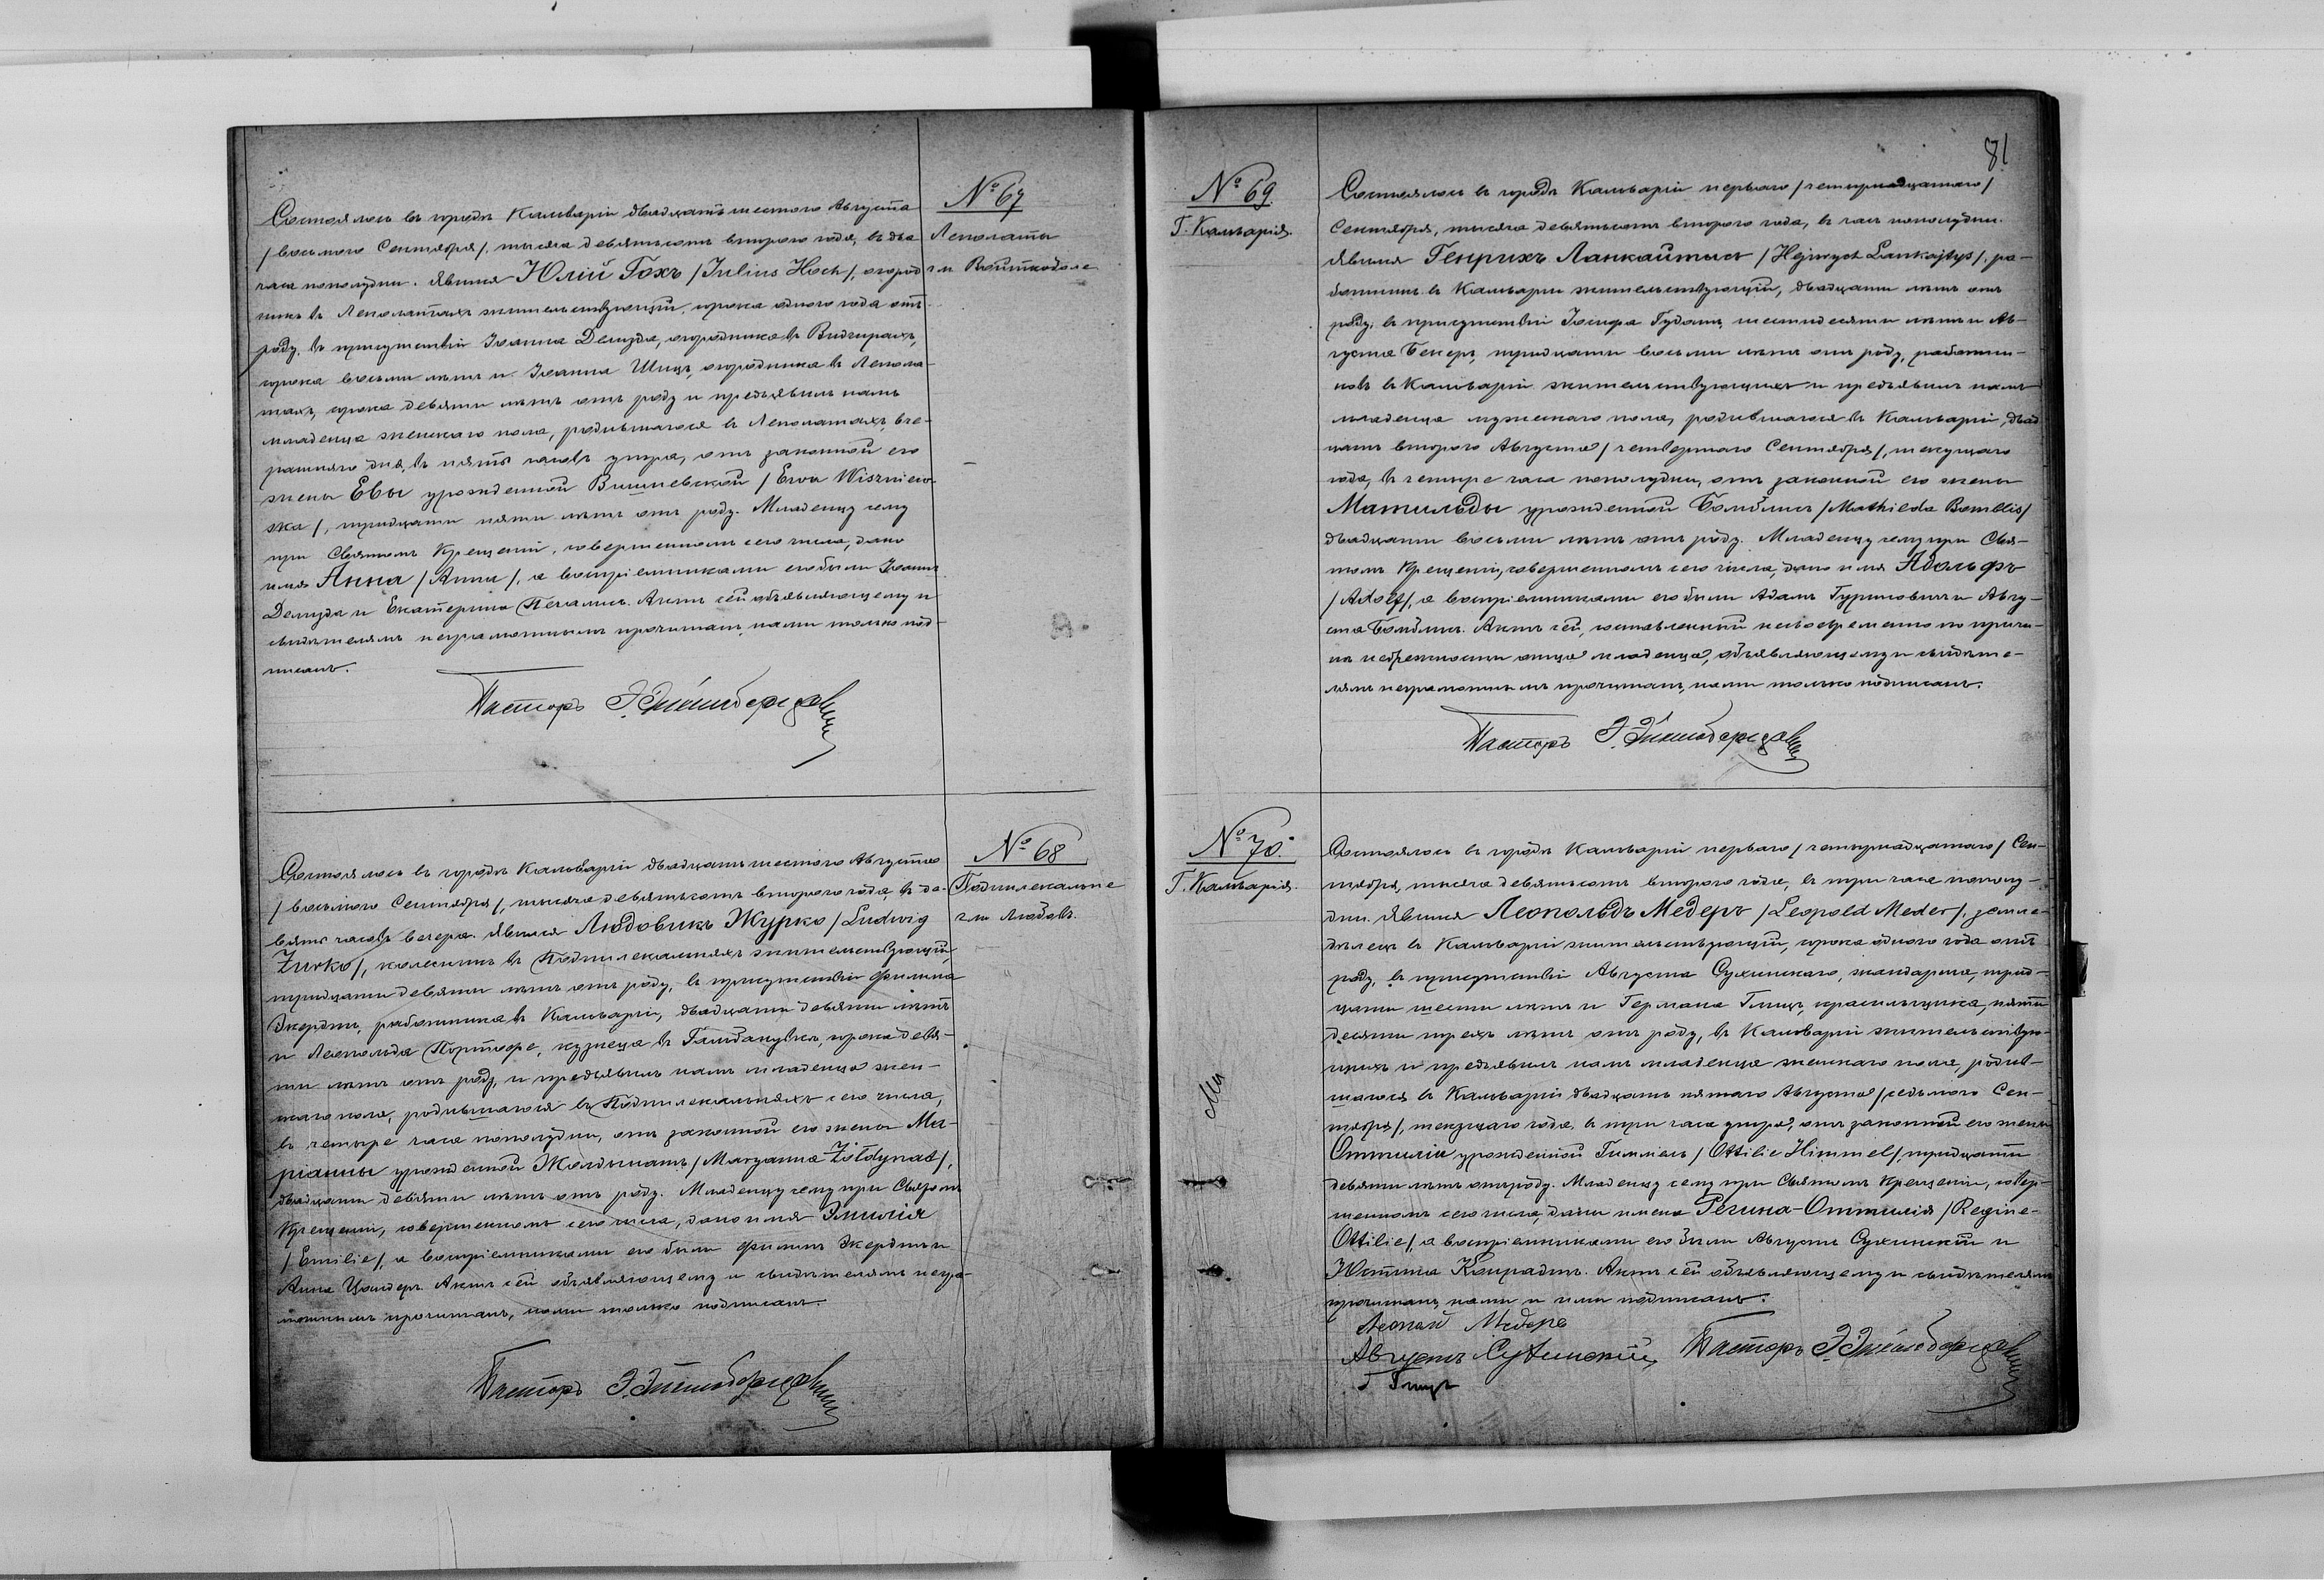 № 67
Леполаты
гм. Войткобол
Состоялось въ городѣ Кальваріи двадцать шестого Августа
/восьмого Сентября/, тысяча девятьсотъ второго года, въ два
часа пополудни. Явился Юлій Гохъ /Julius Hoch/, огород
никъ въ Леполатахъ жительствующій, сорока одного года отъ
роду, въ присутствіи Іоанна Делизда, огородника въ Видгирахъ,
сорока восьми лѣтъ и Іоанна Шицъ, огородника въ Лепола-
тахъ, сорока девяти лѣтъ отъ роду и предъявилъ намъ
младенца женскаго пола, родившагося въ Леполатахъ, вче-
рашняго дня, въ пять часовъ утра, отъ законной его
жены Евы урожденной Вишневской /Ewa Wiszniew-
ska/, тридцати пяти лѣтъ отъ роду. Младенцу сему
при Святомъ Крещеніи, совершенномъ сего числа, дано
имя Анна /Anna/, а воспріемниками его были Іоаннъ
Делизда и Екатерина Печались. Актъ сей объявляющему и
свидѣтелямъ неграмотнымъ прочитанъ, нами только под-
писанъ.
Пасторъ Э.
№ 68
Подшлекальне
гм. Любовъ.
Состоялось въ городѣ Кальваріи двадцать шестого Августа
/восьмого Сентября/, тысяча девятьсотъ второго года, въ де-
вять часовъ вечера. Явился Людовикъ Журко /Ludwig
Żurko/, колесникъ въ Подшлекальняхъ жительствующій,
тридцати девяти лѣтъ отъ роду, въ присутствіи Филипа
Экердтъ, работника въ Кальваріи, двадцати девяти лѣтъ
и Леопольда Портофе, кузнеца въ сорока девя-
ти лѣтъ отъ роду, и предъявилъ намъ младенца жен-
скаго пола, родившагося въ Подшлекальняхъ сего числа,
въ четыре часа пополудни, отъ законной его жены Ма-
ріанны урожденной Жолдынатъ /Maryanna Żołdynat/,
двадцати девяти лѣтъ отъ роду. Младенцу сему при Святомъ
Крещеніи, совершенномъ сего числа, дано имя Эмилія
/Emilie/, а воспріемниками его были Филипъ Экердтъ и
Анна Цандеръ. Актъ сей объявляющему и свидѣтелямъ негра-
мотнымъ прочитанъ, нами только подписанъ.
Пасторъ Э.
81
№ 69.
Г. Кальварія.
Состоялось въ городѣ Кальваріи перваго /четырнадцатаго/
Сентября, тысяча девятьсотъ второго года, въ часъ пополудни.
Явился Генрихъ Ланкайтысъ /Hejnrych Lankajtys/, ра-
ботникъ въ Кальваріи жительствующій, двадцати лѣтъ отъ
роду, въ присутствіи Іосифа Гудатъ, шестидесяти лѣтъ и Ав-
густа Бекеръ, тридцати восьми лѣтъ отъ роду, работни-
ковъ въ Кальваріи жительствующихъ и предъявилъ намъ
младенца мужескаго пола, родившагося въ Кальваріи, двад
цать второго Августа /четвертаго Сентября/, текущаго
года, въ четыре часа пополудни, отъ законной его жены
Матильды урожденной Бомблисъ /Mathilda Bomblis/
двадцати восьми лѣтъ отъ роду. Младенцу сему при Свя-
томъ Крещеніи, совершенномъ сего числа, дано имя Адольфъ
/Adolf/, а воспріемниками его были Адамъ Гуриновичъ и Авгу-
ста Бомблисъ. Актъ сей, составленный несвоевременно по причи-
нѣ небрежности отца младенца, объявляющему и свидѣте-
лямъ неграмотнымъ прочитанъ, нами только подписанъ.
Пасторъ Э.
№ 70.
Г. Кальварія.
Состоялось въ городѣ Кальваріи перваго /четырнадцатаго/ Сен-
тября, тысяча девятьсотъ второго года, въ три часа пополу-
дни. Явился Леопольдъ Медеръ /Leopold Meder/, земле-
дѣлецъ въ Кальваріи жительствующій, сорока одного года отъ
роду, въ присутствіи Августа Сухинскаго, жандарма, трид-
цати шести лѣтъ и Германа Глицъ, красильщика, пяти
десяти трехъ лѣтъ отъ роду, въ Кальваріи жительствую-
щихъ и предъявилъ намъ младенца женскаго пола, родив-
шагося въ Кальваріи двадцать пятаго Августа /седьмого Сен-
тября/, текущаго года, въ три часа утра, отъ законной его жены
Оттиліи урожденной Гиммель /Ottilie Himmel/, тридцати
девяти лѣтъ отъ роду. Младенцу сему при Святомъ Крещеніи, совер-
шенномъ сего числа, даны имена Регина-Оттилія /Regine-
Ottilie/, а воспріемниками его были Августъ Сухинскій и
Юстина Конрадтъ. Актъ сей объявляющему и свидѣтелямъ
прочитанъ, нами и ими подписанъ.
Медеръ
Августъ Сухинскій, Пасторъ Э.
Г Глицъ